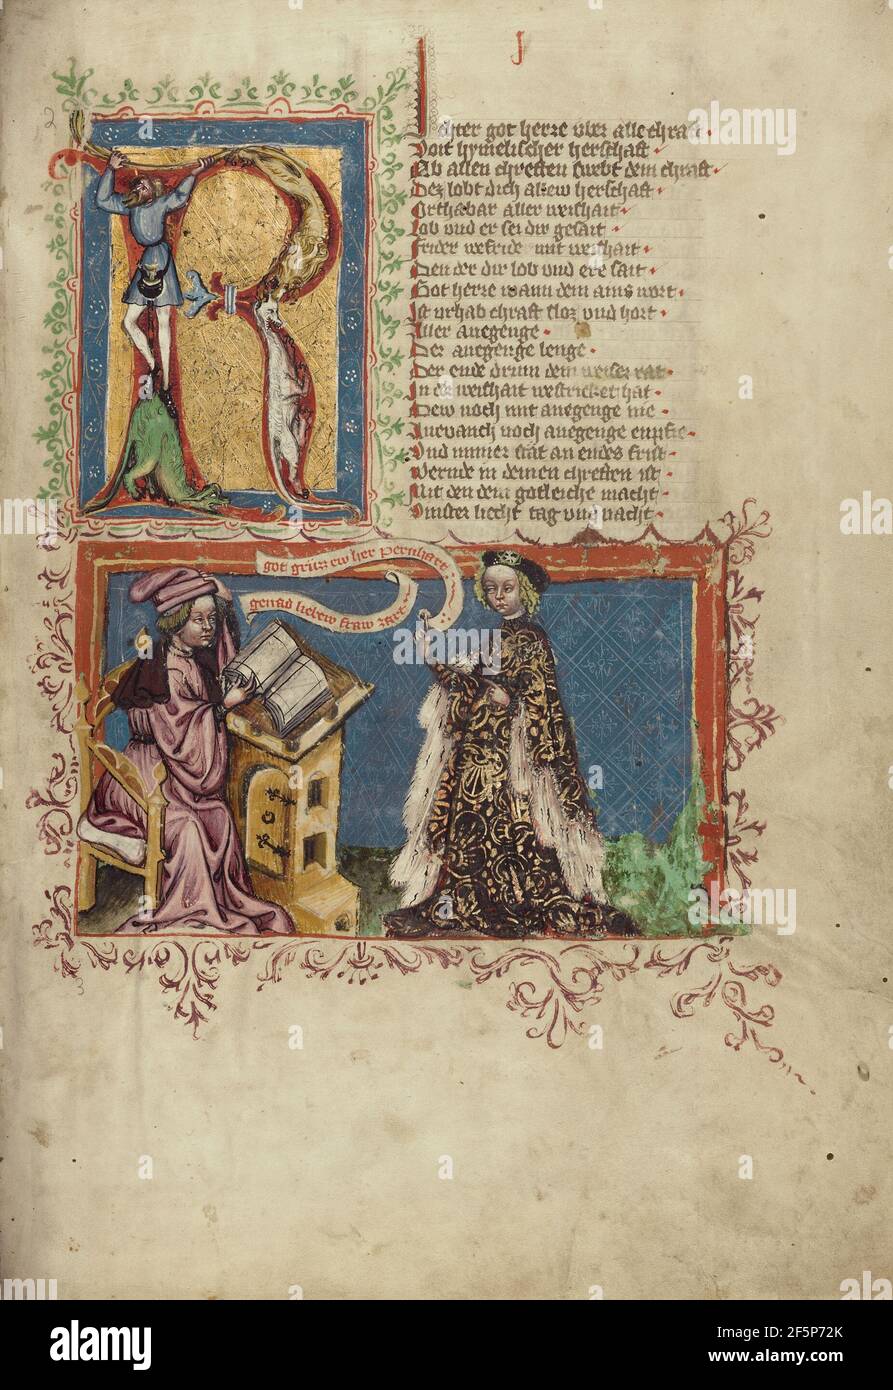 J
R Ichter got herre vber alle chraft
Voit hymelischer herschaft
Ob allen chreften swebt dem chraft
Dez lobt dich allew herschaft
Orthabær aller weishait
Lob vnd er sei dir gesait
frider wefride mit weishait
Den der dir lob vnd ere sait
Got herre wann dem ains wort
Ist vrhab chraft sloz vnd hort
Aller anegenge
Der anegenge lenge
Der ende drum dem weiser rat
In der weishait westricket hat
Dew noch mit anegenge nie
noch anegenge enpfie
Vnd nimer stat an endes frist
Wernde in deinen chreften ist
Mit den dem gotleiche macht
Vinster liecht tag vnd nacht
got gruzz ew her Pernhart
genad liebew fraw zart
alamy
Image ID: 2F5P72K
www.alamy.com